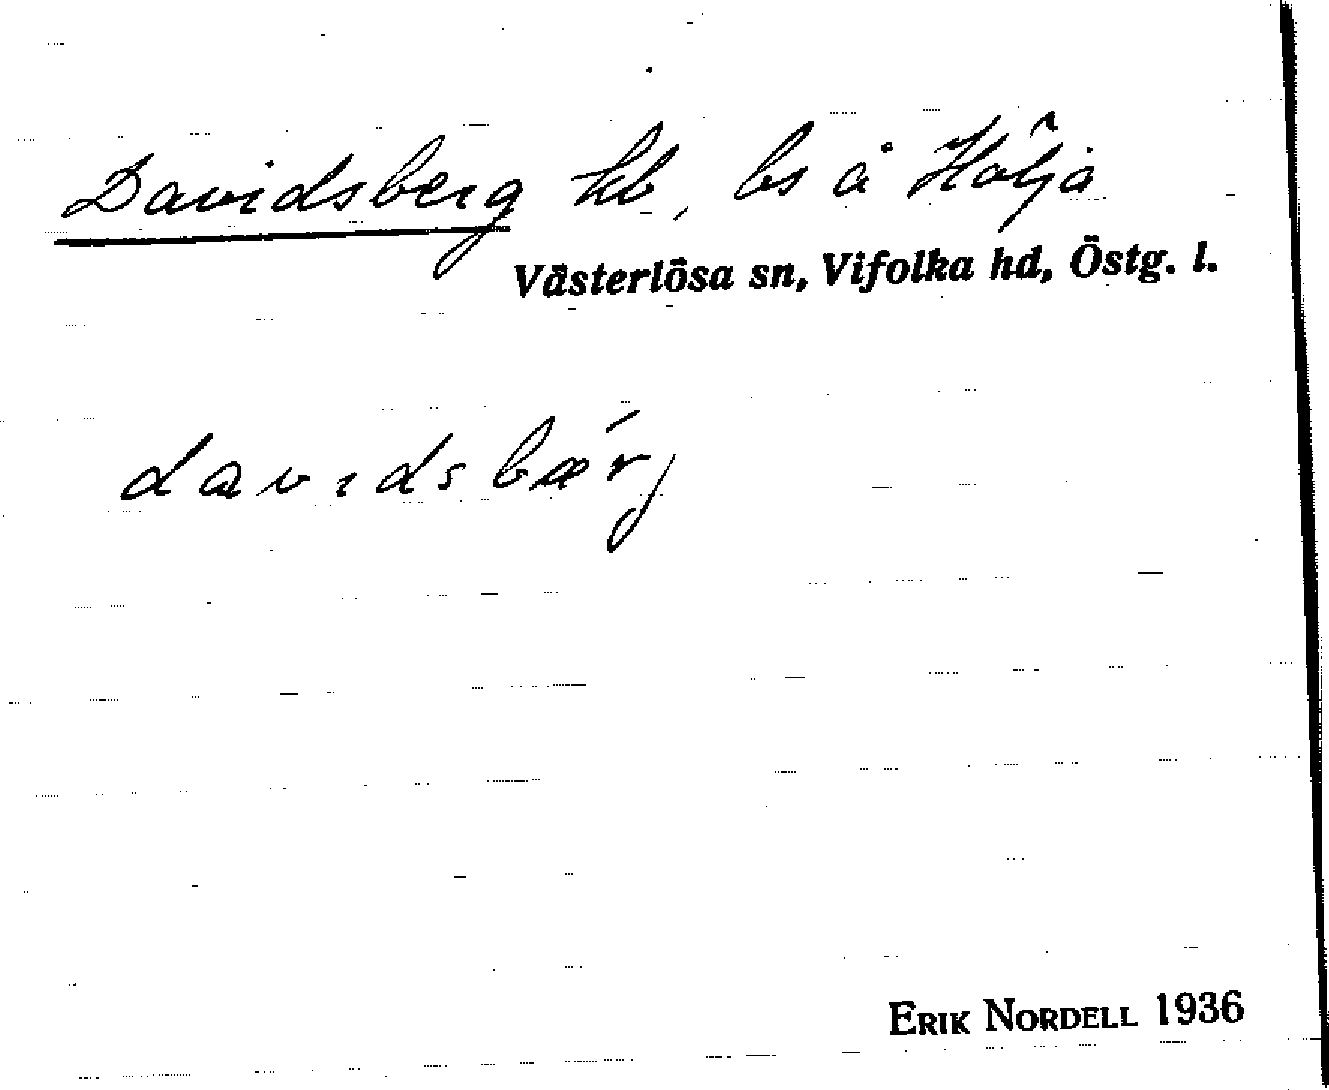 Davidsberg hb, bs å Hölja
Västerlösa sn, Vifolka hd, Östg. l.
davidsbærj
ERIK NORDELL 1936